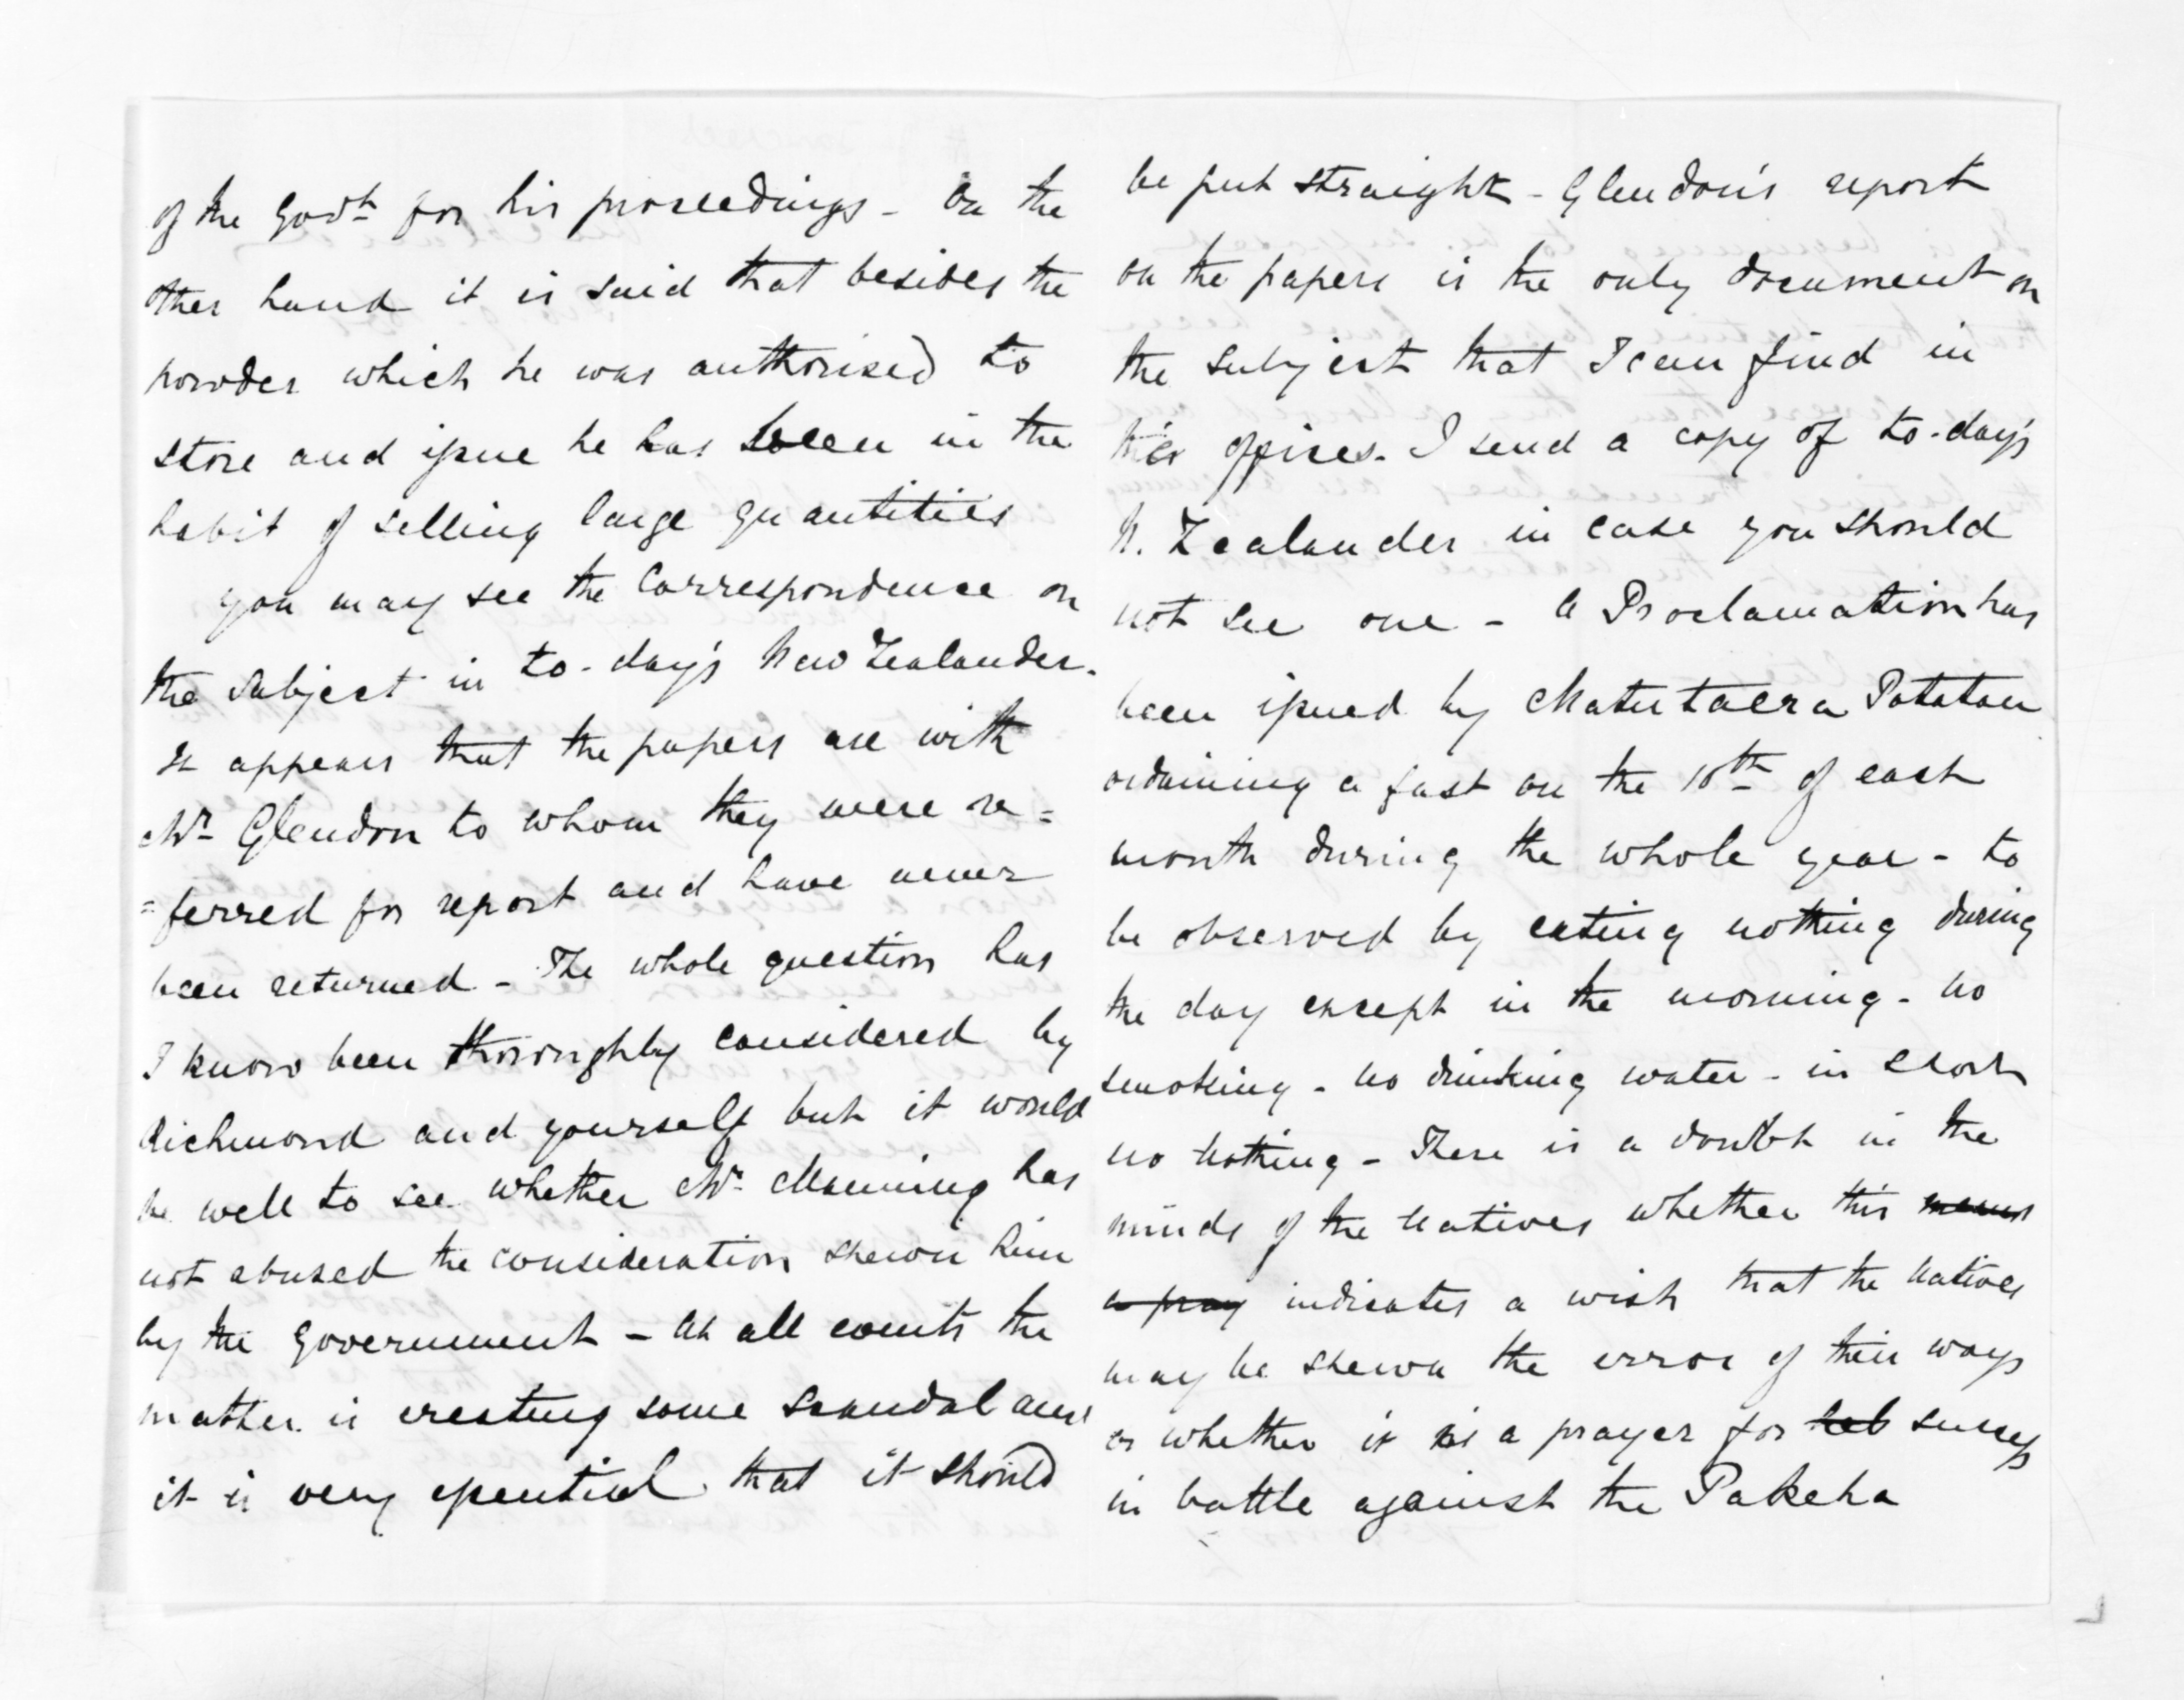 of the Govt for his proceedings - On the
other hand it is said that besides the
powder which he was authorised to
store and issue he has been in the
habit of selling large quantities
you may see the Correspondence on
the subject in to-day's New Zealander.
It appears that the papers are with
Mr Glendon to whom they were re=
=ferred for report and have never
been returned - The whole question has
I know been thoroughly considered by
Richmond and yourself but it would
be well to see whether Mr Manning has
not abused the consideration shewn him
by the Government - At all events the
matter is creating some scandal and
it is very essential that it should
be put straight - Glendon's report
on the papers is the only document on
the subject that I can find in
offices. I send a copy of to-day's
N. Zealander in case you should
not see one - A Proclamation has
been issued by Matutaera Potatau
ordaining a fast on the 10th of each
month during the whole year - to
be observed by eating nothing during
the day except in the morning - no
smoking - no drinking water - in short
no nothing - There is a doubt in the
minds of the Natives whether this means
a pray indicates a wish that the Natives
may be shewn the error of their ways
or whether it is a prayer for success
in battle against the Pakeha